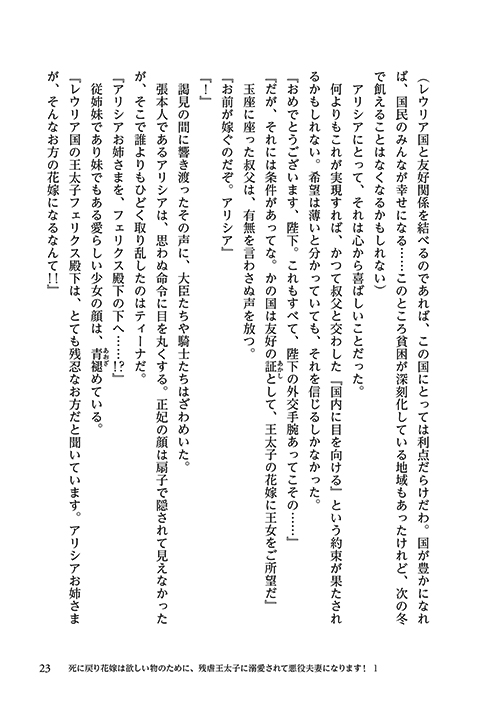 （レウリア国と友好関係を結べるのであれば、この国にとっては利点だらけだわ。国が豊かになれ
ば、国民のみんなが幸せになる……このところ貧困が深刻化している地域もあったけれど、次の冬
で飢えることはなくなるかもしれない）
アリシアにとって、それは心から喜ばしいことだった。
何よりもこれが実現すれば、かつて叔父と交わした『国内に目を向ける』という約束が果たされ
るかもしれない。希望は薄いと分かっていても、それを信じるしかなかった。
『おめでとうございます、陛下。これもすべて、陛下の外交手腕あってこその……』
『だが、それには条件があってな。かの国は友好の証として、王太子の花嫁に王女をご所望だ』
あかし
玉座に座った叔父は、有無を言わさぬ声を放つ。
『お前が嫁ぐのだぞ。アリシア』
『！』
謁見の間に響き渡ったその声に、大臣たちや騎士たちはざわめいた。
張本人であるアリシアは、思わぬ命令に目を丸くする。正妃の顔は扇子で隠されて見えなかった
が、そこで誰よりもひどく取り乱したのはティーナだ。
『アリシアお姉さまを、フェリクス殿下の下へ……!?』
従姉妹であり妹でもある愛らしい少女の顔は、青褪めている。
あおざ
『レウリア国の王太子フェリクス殿下は、とても残忍なお方だと聞いています。アリシアお姉さま
が、そんなお方の花嫁になるなんて!!』
23 死に戻り花嫁は欲しい物のために、残虐王太子に溺愛されて悪役夫妻になります！ 1